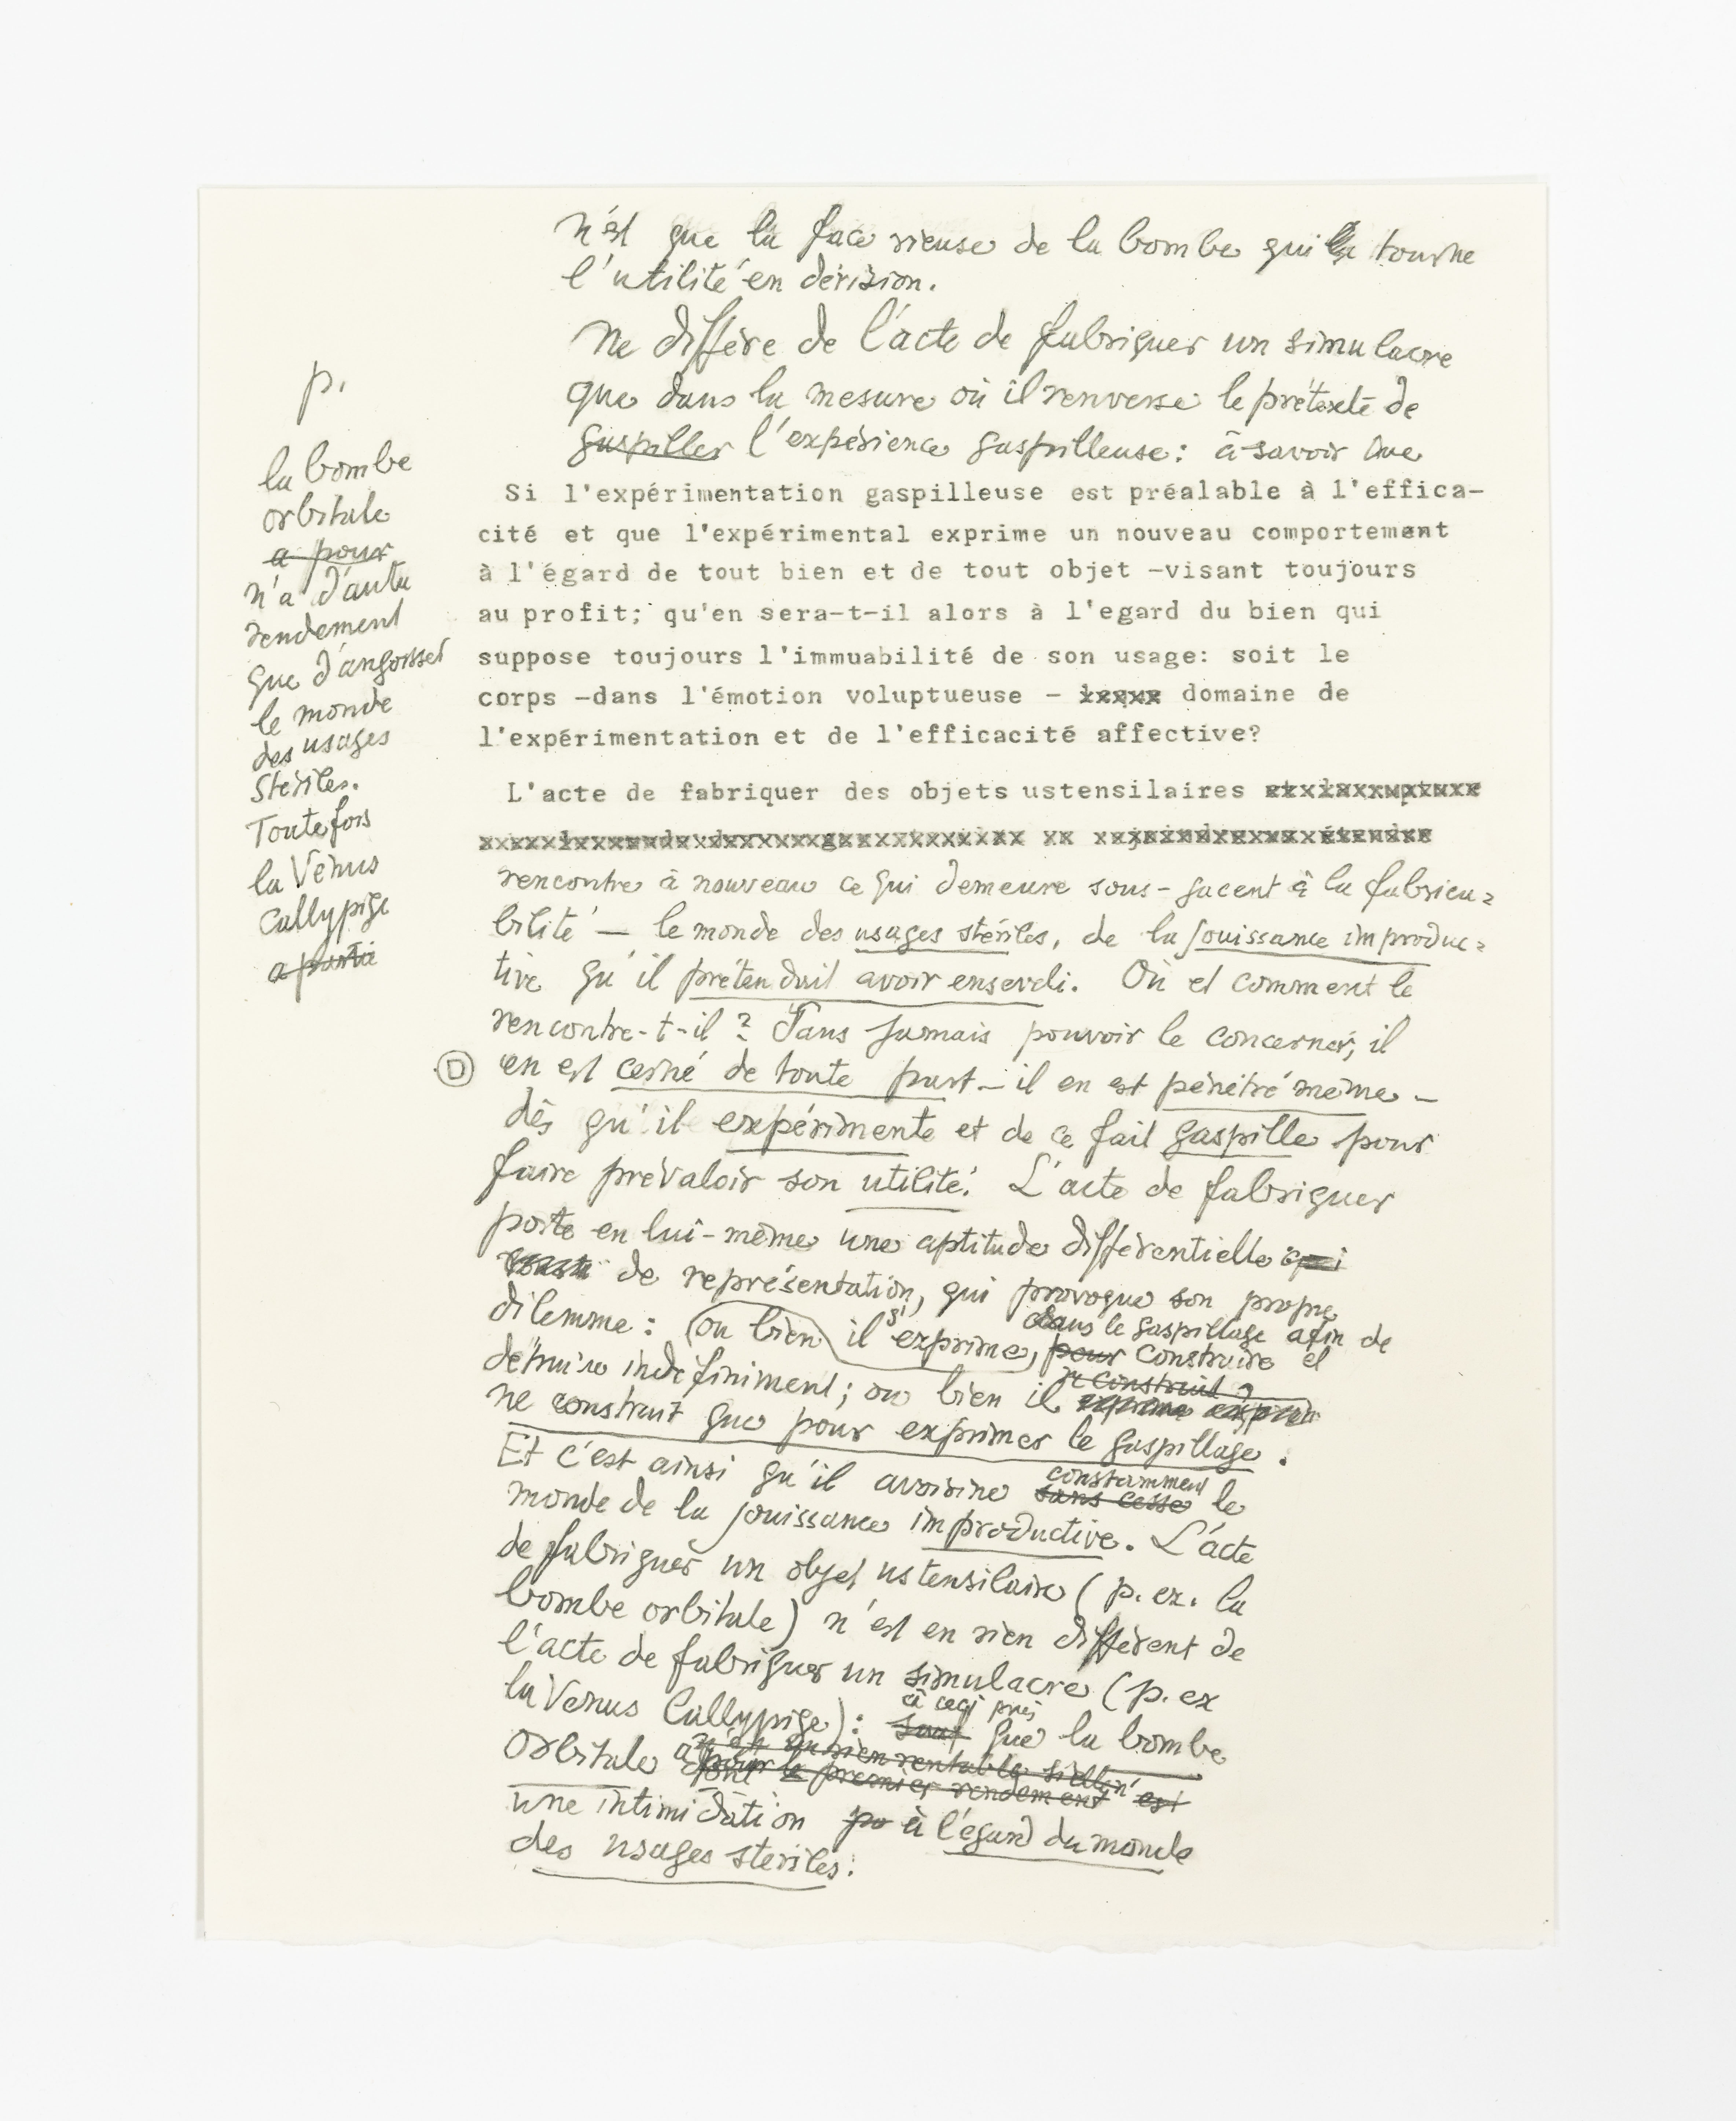 n'est que la face rieuse de la bombe qui tourne
l'utilité en dérision.
Ne diffère de l'acte de fabriquer un simulacre
que dans la mesure où il renverse le prétexte de
gaspiller l'expérience gaspilleuse: à savoir que
p.
la bombe
orbitale
a pour
n'a d'autre
rendement
que d'angoisser
le monde
des usages
stériles.
Toutefois
la Vénus
Callypige
Si l'expérimentation gaspilleuse est préalable à l'effica-
cité et que l'expérimental exprime un nouveau comportement
à l'égard de tout bien et de tout objet -visant toujours
au profit; qu'en sera-t-il alors à l'egard du bien qui
suppose toujours l'immuabilité de son usage: soit le
corps -dans l'émotion voluptueuse - domaine de
l'expérimentation et de l'efficacité affective?
L'acte de fabriquer des objets ustensilaires
rencontre à nouveau ce qui demeure sous-jacent à la fabrica=
bilité — le monde des usages stériles, de la jouissance improduc=
tive qu'il prétendait avoir enseveli. Où et comment le
rencontre-t-il? Sans jamais pouvoir le concerner, il
D en est cerné de toute part — il en est pénétré même —
dès qu'il expérimente et de ce fait gaspille pour
faire prévaloir son utilité. L'acte de fabriquer
porte en lui-même une aptitude différentielle qui
de représentation, qui provoque son propre
dilemme: ou bien il s'exprime, dans le gaspillage afin de
pour construire et
détruire indéfiniment; ou bien il
ne construit que pour exprimer le gaspillage.
Et c'est ainsi qu'il avoisine constamment sans cesse le
monde de la jouissance improductive. L'acte
de fabriquer un objet ustensilaire (p. ex. la
bombe orbitale) n'est en rien différent de
l'acte de fabriquer un simulacre (p. ex
la Vénus Callypige): à ceci près sauf que la bombe
n'est qu rien rentable si elle n'est
orbitale a pour le premier rendement
une intimidation à l'égard du monde
des usages stériles.